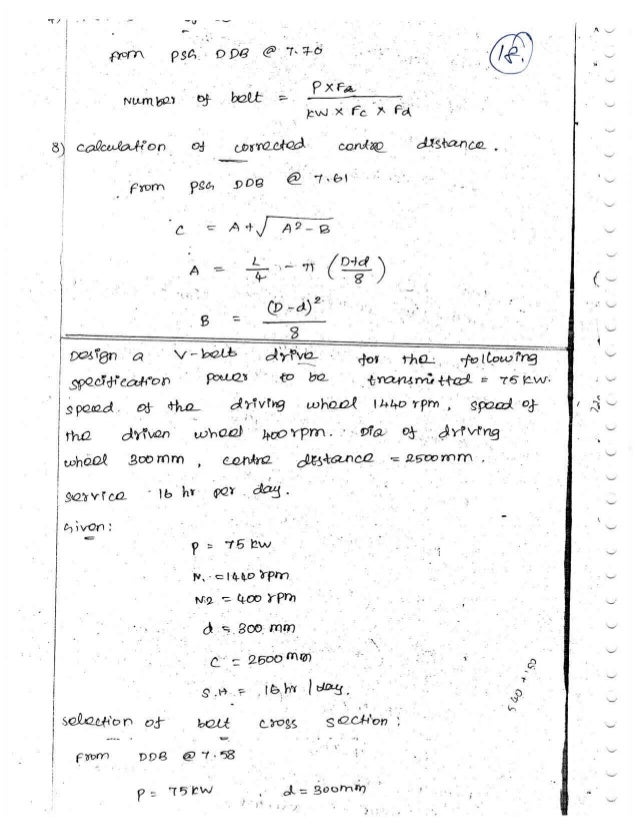 18.
from PSG DDB @ 7.70
Number of belt = P x Fa / kW x Fc x Fd
8) calculation of corrected centre distance.
From PSG DDB @ 7.61
C = A + √ A² - B
A = L/4 - π (D+d/8)
B = (D-d)²/8
Design a V-belt drive for the following
specification power to be transmitted = 75 kW.
speed of the driving wheel 1440 rpm, speed of
the driven wheel 400 rpm. Dia of driving
wheel 300 mm, centre distance = 2500 mm.
service 16 hr per day.
Given:
P = 75 kW
N1 = 1440 rpm
N2 = 400 rpm
d = 300 mm
C = 2500 mm
S.H = 16 hr / day.
selection of belt cross section:
From DDB @ 7.58
P = 75 kW, d = 300mm